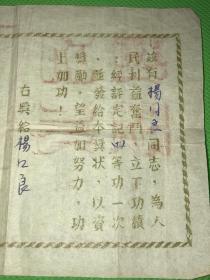 该有楊川良同志，為人
民利益奮鬥，立了功績
，經評定記四等功一次
，發給本獎狀，以資
獎勵，望益加努力，功
上加功！
右獎給楊江良